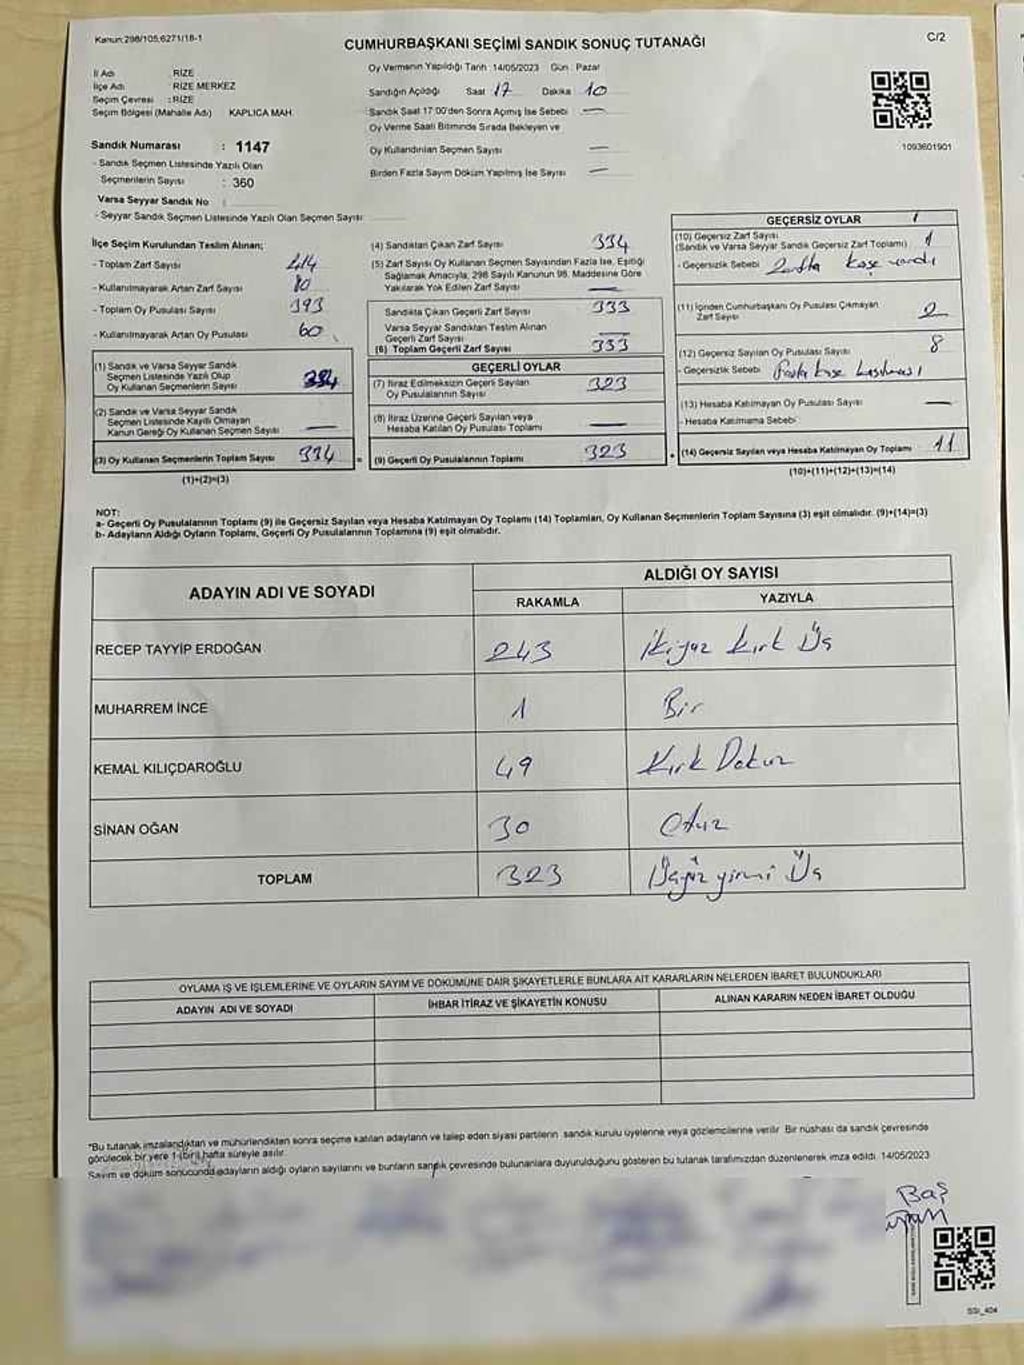 Kanun:298/105,6271/18-1
CUMHURBAŞKANI SEÇİMİ SANDIK SONUÇ TUTANAĞI
C/2
İl Adı : RİZE
İlçe Adı : RİZE MERKEZ
Seçim Çevresi : RİZE
Seçim Bölgesi (Mahalle Adı) KAPLICA MAH.
Sandık Numarası : 1147
- Sandık Seçmen Listesinde Yazılı Olan
Seçmenlerin Sayısı : 360
Varsa Seyyar Sandık No :
- Seyyar Sandık Seçmen Listesinde Yazılı Olan Seçmen Sayısı
Oy Vermenin Yapıldığı Tarih : 14/05/2023 Gün : Pazar
Sandığın Açıldığı Saat 17 Dakika 10
Sandık Saat 17:00'den Sonra Açılmış İse Sebebi —
Oy Verme Saati Bitiminde Sırada Bekleyen ve
Oy Kullandırılan Seçmen Sayısı —
Birden Fazla Sayım Döküm Yapılmış İse Sayısı —
1093601901
İlçe Seçim Kurulundan Teslim Alınan;
- Toplam Zarf Sayısı 414
- Kullanılmayarak Artan Zarf Sayısı 80
- Toplam Oy Pusulası Sayısı 393
- Kullanılmayarak Artan Oy Pusulası 60
(1) Sandık ve Varsa Seyyar Sandık
Seçmen Listesinde Yazılı Olup
Oy Kullanan Seçmenlerin Sayısı 334
(2) Sandık ve Varsa Seyyar Sandık
Seçmen Listesinde Kayıtlı Olmayan
Kanun Gereği Oy Kullanan Seçmen Sayısı —
(3) Oy Kullanan Seçmenlerin Toplam Sayısı 334 =
(1)+(2)=(3)
(4) Sandıktan Çıkan Zarf Sayısı 334
(5) Zarf Sayısı Oy Kullanan Seçmen Sayısından Fazla İse, Eşitliği
Sağlamak Amacıyla, 298 Sayılı Kanunun 98. Maddesine Göre
Yakılarak Yok Edilen Zarf Sayısı —
Sandıkta Çıkan Geçerli Zarf Sayısı 333
Varsa Seyyar Sandıktan Teslim Alınan
Geçerli Zarf Sayısı —
(6) Toplam Geçerli Zarf Sayısı 333
GEÇERLİ OYLAR
(7) İtiraz Edilmeksizin Geçerli Sayılan
Oy Pusulalarının Sayısı 323
(8) İtiraz Üzerine Geçerli Sayılan veya
Hesaba Katılan Oy Pusulası Toplamı —
(9) Geçerli Oy Pusulalarının Toplamı 323 +
GEÇERSİZ OYLAR 1
(10) Geçersiz Zarf Sayısı
(Sandık ve Varsa Seyyar Sandık Geçersiz Zarf Toplamı) 1
- Geçersizlik Sebebi Zarfta kaşe vardı
(11) İçinden Cumhurbaşkanı Oy Pusulası Çıkmayan
Zarf Sayısı 2
(12) Geçersiz Sayılan Oy Pusulası Sayısı 8
- Geçersizlik Sebebi Fazla kaşe basılması
(13) Hesaba Katılmayan Oy Pusulası Sayısı —
- Hesaba Katılmama Sebebi
(14) Geçersiz Sayılan veya Hesaba Katılmayan Oy Toplamı 11
(10)+(11)+(12)+(13)=(14)
NOT:
a- Geçerli Oy Pusulalarının Toplamı (9) ile Geçersiz Sayılan veya Hesaba Katılmayan Oy Toplamı (14) Toplamları, Oy Kullanan Seçmenlerin Toplam Sayısına (3) eşit olmalıdır. (9)+(14)=(3)
b- Adayların Aldığı Oyların Toplamı, Geçerli Oy Pusulalarının Toplamına (9) eşit olmalıdır.
ADAYIN ADI VE SOYADI
ALDIĞI OY SAYISI
RAKAMLA YAZIYLA
RECEP TAYYİP ERDOĞAN 243 İkiyüz kırk Üç
MUHARREM İNCE 1 Bir
KEMAL KILIÇDAROĞLU 49 Kırk Dokuz
SİNAN OĞAN 30 Otuz
TOPLAM 323 Üçyüz yirmi Üç
OYLAMA İŞ VE İŞLEMLERİNE VE OYLARIN SAYIM VE DÖKÜMÜNE DAİR ŞİKAYETLERLE BUNLARA AİT KARARLARIN NELERDEN İBARET BULUNDUKLARI
ADAYIN ADI VE SOYADI İHBAR İTİRAZ VE ŞİKAYETİN KONUSU ALINAN KARARIN NEDEN İBARET OLDUĞU
*Bu tutanak imzalandıktan ve mühürlendikten sonra seçime katılan adayların ve talep eden siyasi partilerin sandık kurulu üyelerine veya gözlemcilerine verilir. Bir nüshası da sandık çevresinde
görülecek bir yere 1 (bir) hafta süreyle asılır.
Sayım ve döküm sonucunda adayların aldığı oyların sayılarını ve bunların sandık çevresinde bulunanlara duyurulduğunu gösteren bu tutanak tarafımızdan düzenlenerek imza edildi. 14/05/2023
Baş
SSI_404